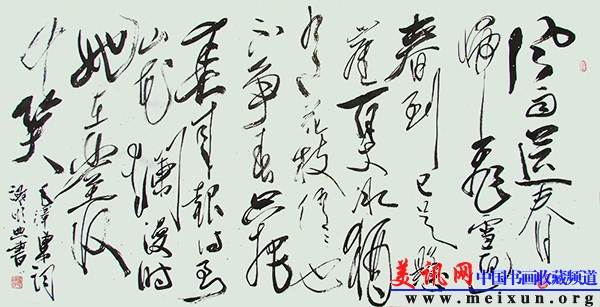 风雨送春
归飞雪迎
春到已是悬
崖百丈冰犹
有花枝俏々也
不争春只把
春来報待到
山花爛漫时
她在丛
中笑
毛泽东词
美讯网 中国书画收藏频道
www.meixun.org